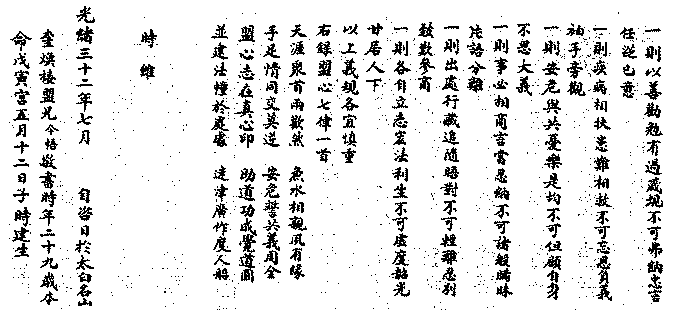 一則以善勸勉有過箴規不可弗納忠言
任逆己意
一則疾病相扶患難相救不可忘恩負義
袖手旁觀
一則安危與共憂樂是均不可但顧自身
不思大義
一則事必相商言當忍納不可諸般瞞昧
片語分離
一則出處行藏追隨晤對不可輕離忽別
致數參商
一則各自立志宏法利生不可虛度韶光
甘居人下
以上義規各宜慎重
右錄盟心七律一首
天涯聚首兩歡然　魚水相親夙有緣
手足情同交莫逆　安危誓共義周全
盟心志在真心印　助道功成覺道圓
並建法幢於處處　迷津廣作度人船
時維
光緒三十二年七月　自咨日於太白名山
奎煥棲盟兄今悟敬書時年二十九歲本
命戊寅宮五月十二日子時建生